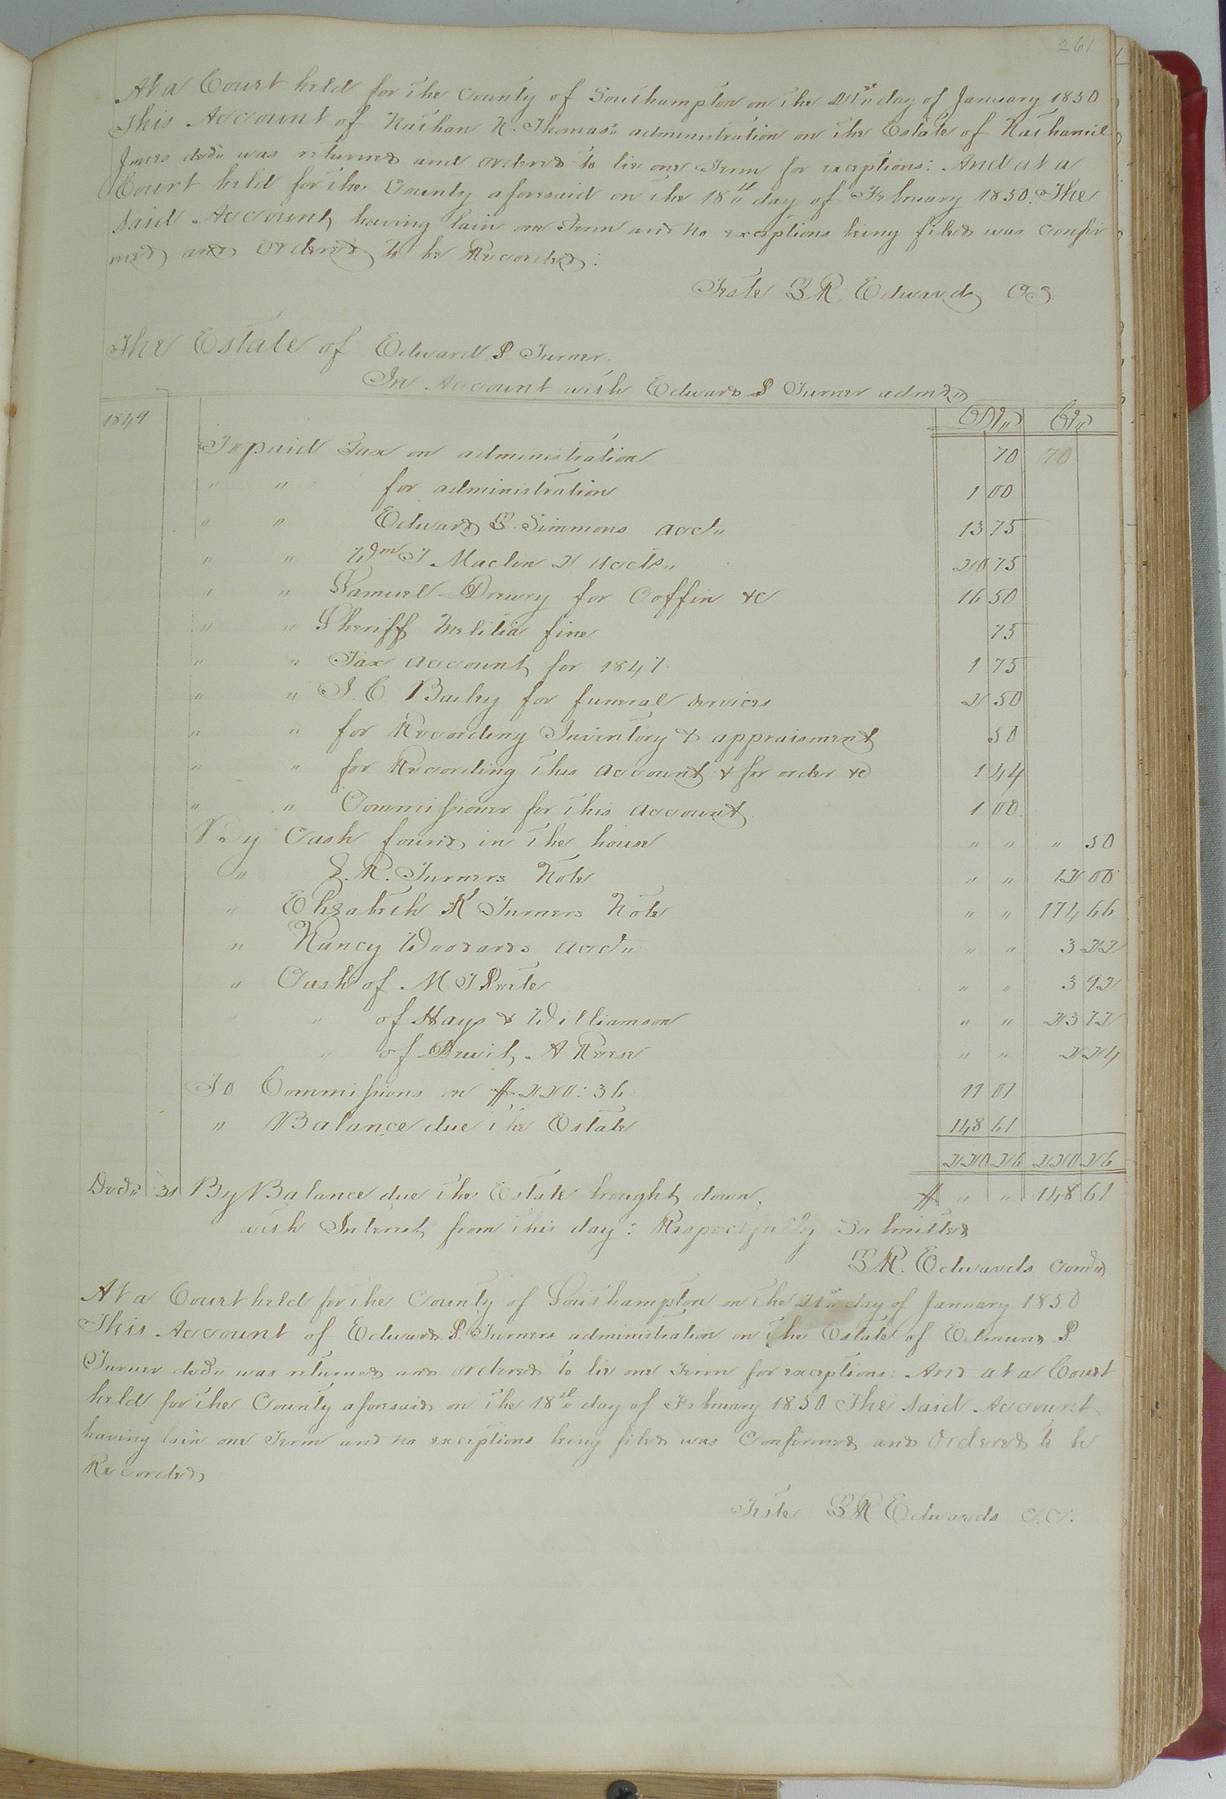 261
At a Court held for the County of Southampton on the 21st day of January 1850
This Account of Nathan N. Thomas's administration on the Estate of Nathaniel
Jones decd. was returned and ordered to lie one Term for exceptions: And at a
Court held for the County aforesaid on the 18th day of February 1850. The
said Account having lain one Term and no exceptions being filed was confir
med and Ordered to be Recorded:
Teste L R Edwards C.C.
The Estate of Edward P Turner.
In Account with Edward P Turner admr.
1849 Dr. Cr.
To paid Tax on administration 70 70
" " for administration 1 00
" " Edward B. Simmons acct. 13 75
" " Wm J Maclin 2 accts. 20 75
" " Samuel Drewry for Coffin &c 16 50
" " Sheriff Melitia fine 75
" " Tax account for 1847 1 75
" " J. C Bailey for funeral services 2 50
" " for Recording Inventory & appraisment 50
" " for Recording this account & for order &c 1 44
" " Commissioner for this account 1 00
By Cash found in the house " " " 50
" J. R. Turners Note " " 12 00
" Elizabeth K Turners Note " " 174 66
" Nancy Woodards acct. " " 3 22
" Cash of M J Prete " " 3 92
" " of Hays & Williamson " " 23 72
" of Drewit A Reese " " 2 24
To Commissions on $220:36 11 01
" Balance due the Estate 148 61
220 26 220 26
Decr. 31 By Balance due the Estate brought down, $ " " 148 61
with Interest from this day: Respectfully Submitted
L R. Edwards Comr.
At a Court held for the County of Southampton on the 21st day of January 1850
This Account of Edward P. Turners administration on the Estate of Edmund P.
Turner decd. was returned and ordered to lie one Term for exceptions: And at a Court
held for the County aforesaid on the 18th day of February 1850 The said Account
having lain one Term and no exceptions being filed was Confirmed and Ordered to be
Recorded,
Teste L R Edwards C.C.